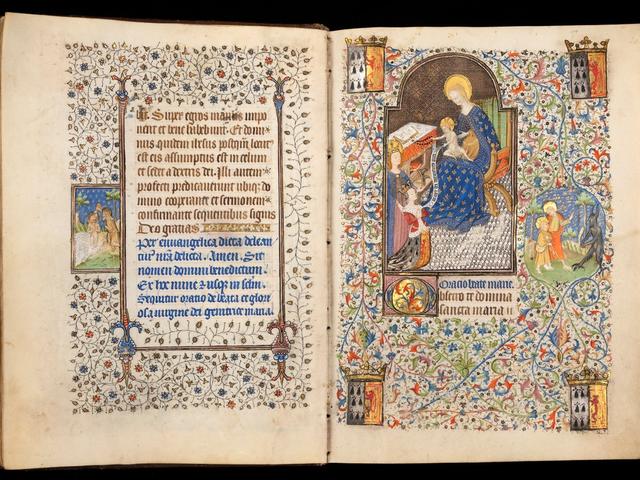 Super egros manus impo
nent et bene habebunt. Et domi
nus quidem ihesus postquam locut
est eis assumptus est in celum
et sedet a dextris dei. Illi autem
profecti predicaverunt ubiqz do
mino cooperante et sermonem
confirmante sequentibus signis
Deo gratias
Per evuangelica dicta delean
tur nra delicta. Amen. Sit
nomen domini benedictum.
Ex hoc nunc z usqz in selm.
Sequitur oratio de beata et glori
osa virgine dei genitrice maria.
Oracio beate marie.
bsecro te domina
sancta maria